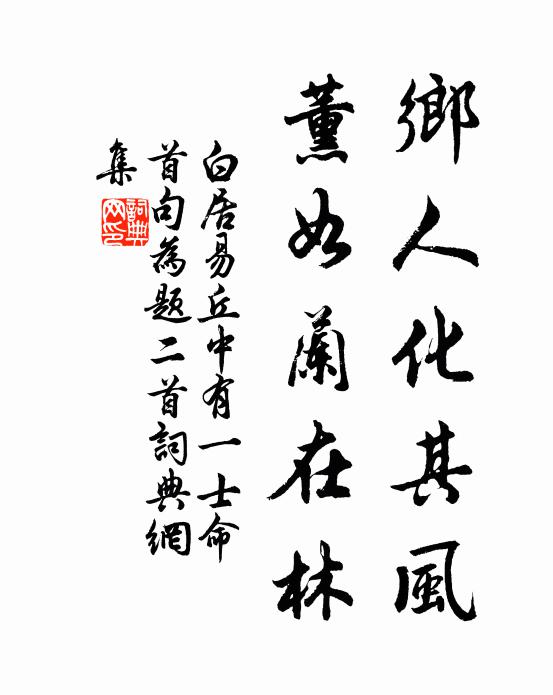 鄉人化其風
薰如蘭在林
白居易丘中有一士命
首句為題二首詞典網
集
詞典網印